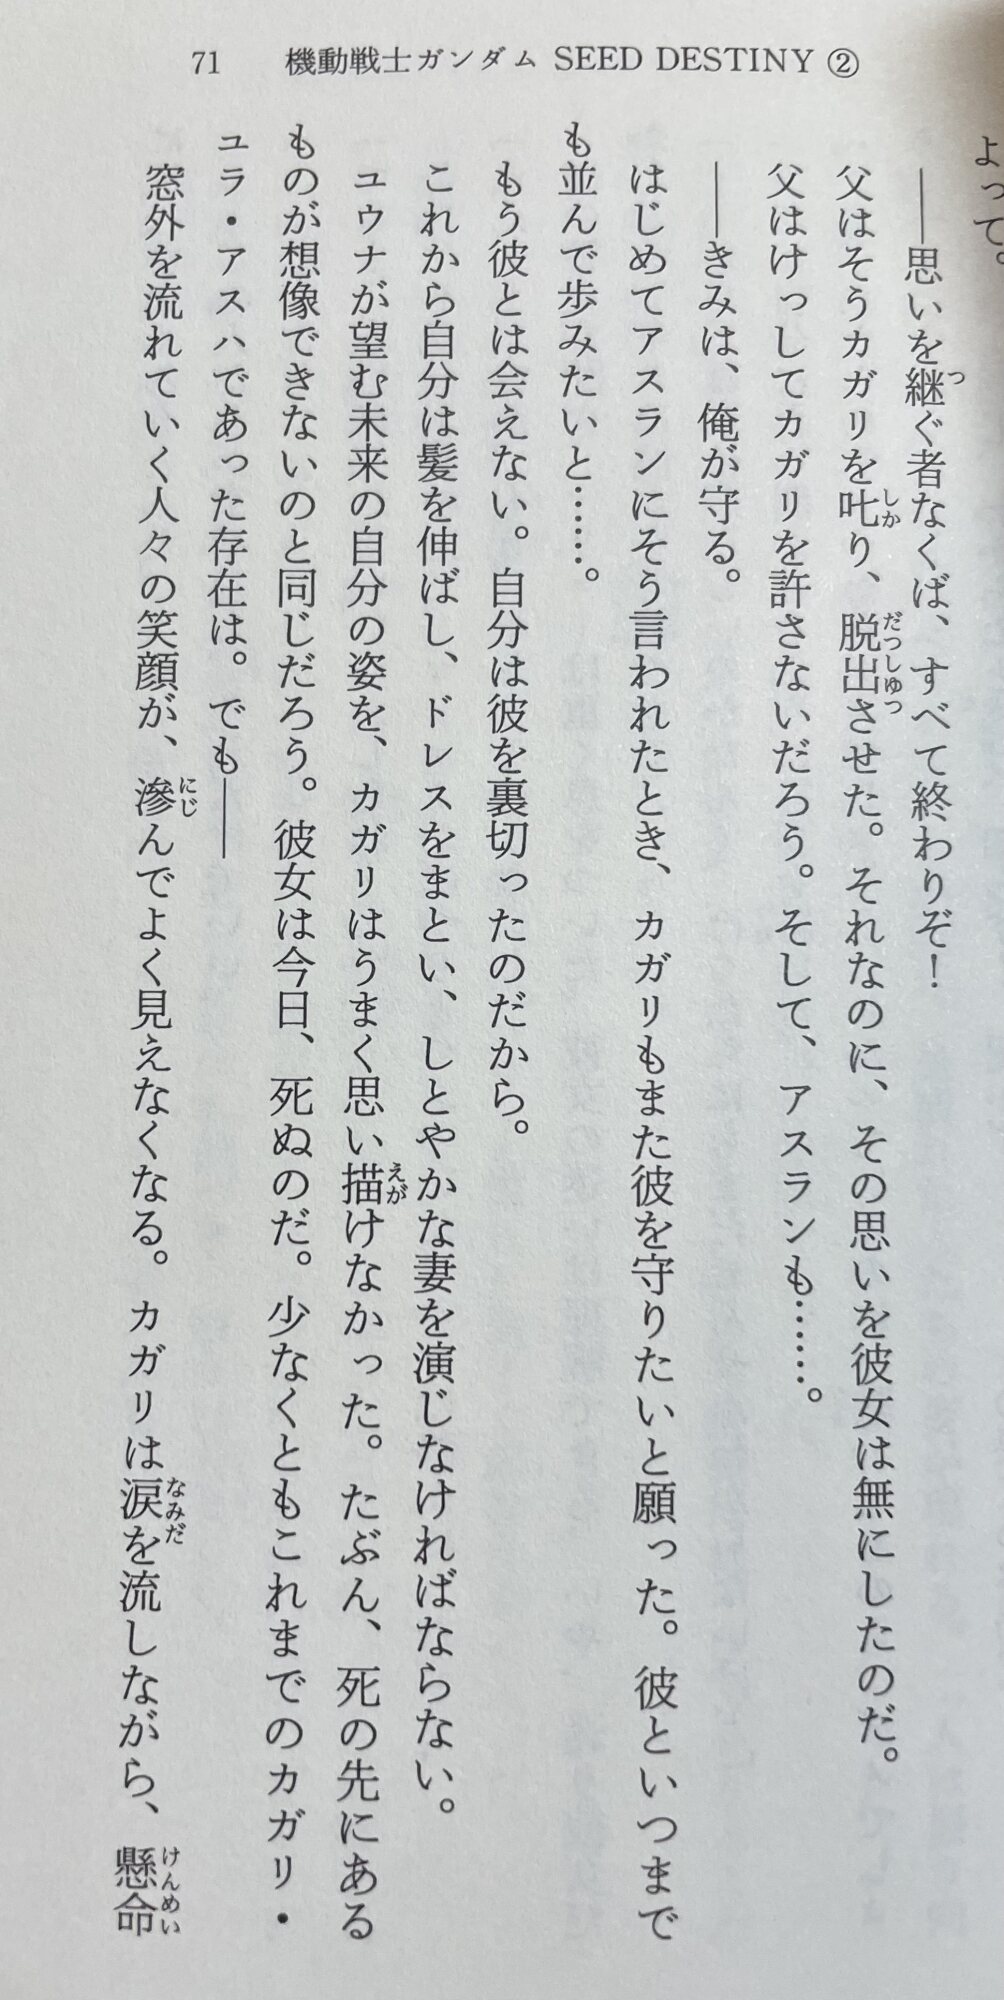 71　機動戦士ガンダム SEED DESTINY ②
よって。
――思いを継ぐ者なくば、すべて終わりぞ！
父はそうカガリを叱り、脱出させた。それなのに、その思いを彼女は無にしたのだ。
父はけっしてカガリを許さないだろう。そして、アスランも……。
――きみは、俺が守る。
はじめてアスランにそう言われたとき、カガリもまた彼を守りたいと願った。彼といつまで
も並んで歩みたいと……。
もう彼とは会えない。自分は彼を裏切ったのだから。
これから自分は髪を伸ばし、ドレスをまとい、しとやかな妻を演じなければならない。
ユウナが望む未来の自分の姿を、カガリはうまく思い描けなかった。たぶん、死の先にある
ものが想像できないのと同じだろう。彼女は今日、死ぬのだ。少なくともこれまでのカガリ・
ユラ・アスハであった存在は。でも――
窓外を流れていく人々の笑顔が、滲んでよく見えなくなる。カガリは涙を流しながら、懸命